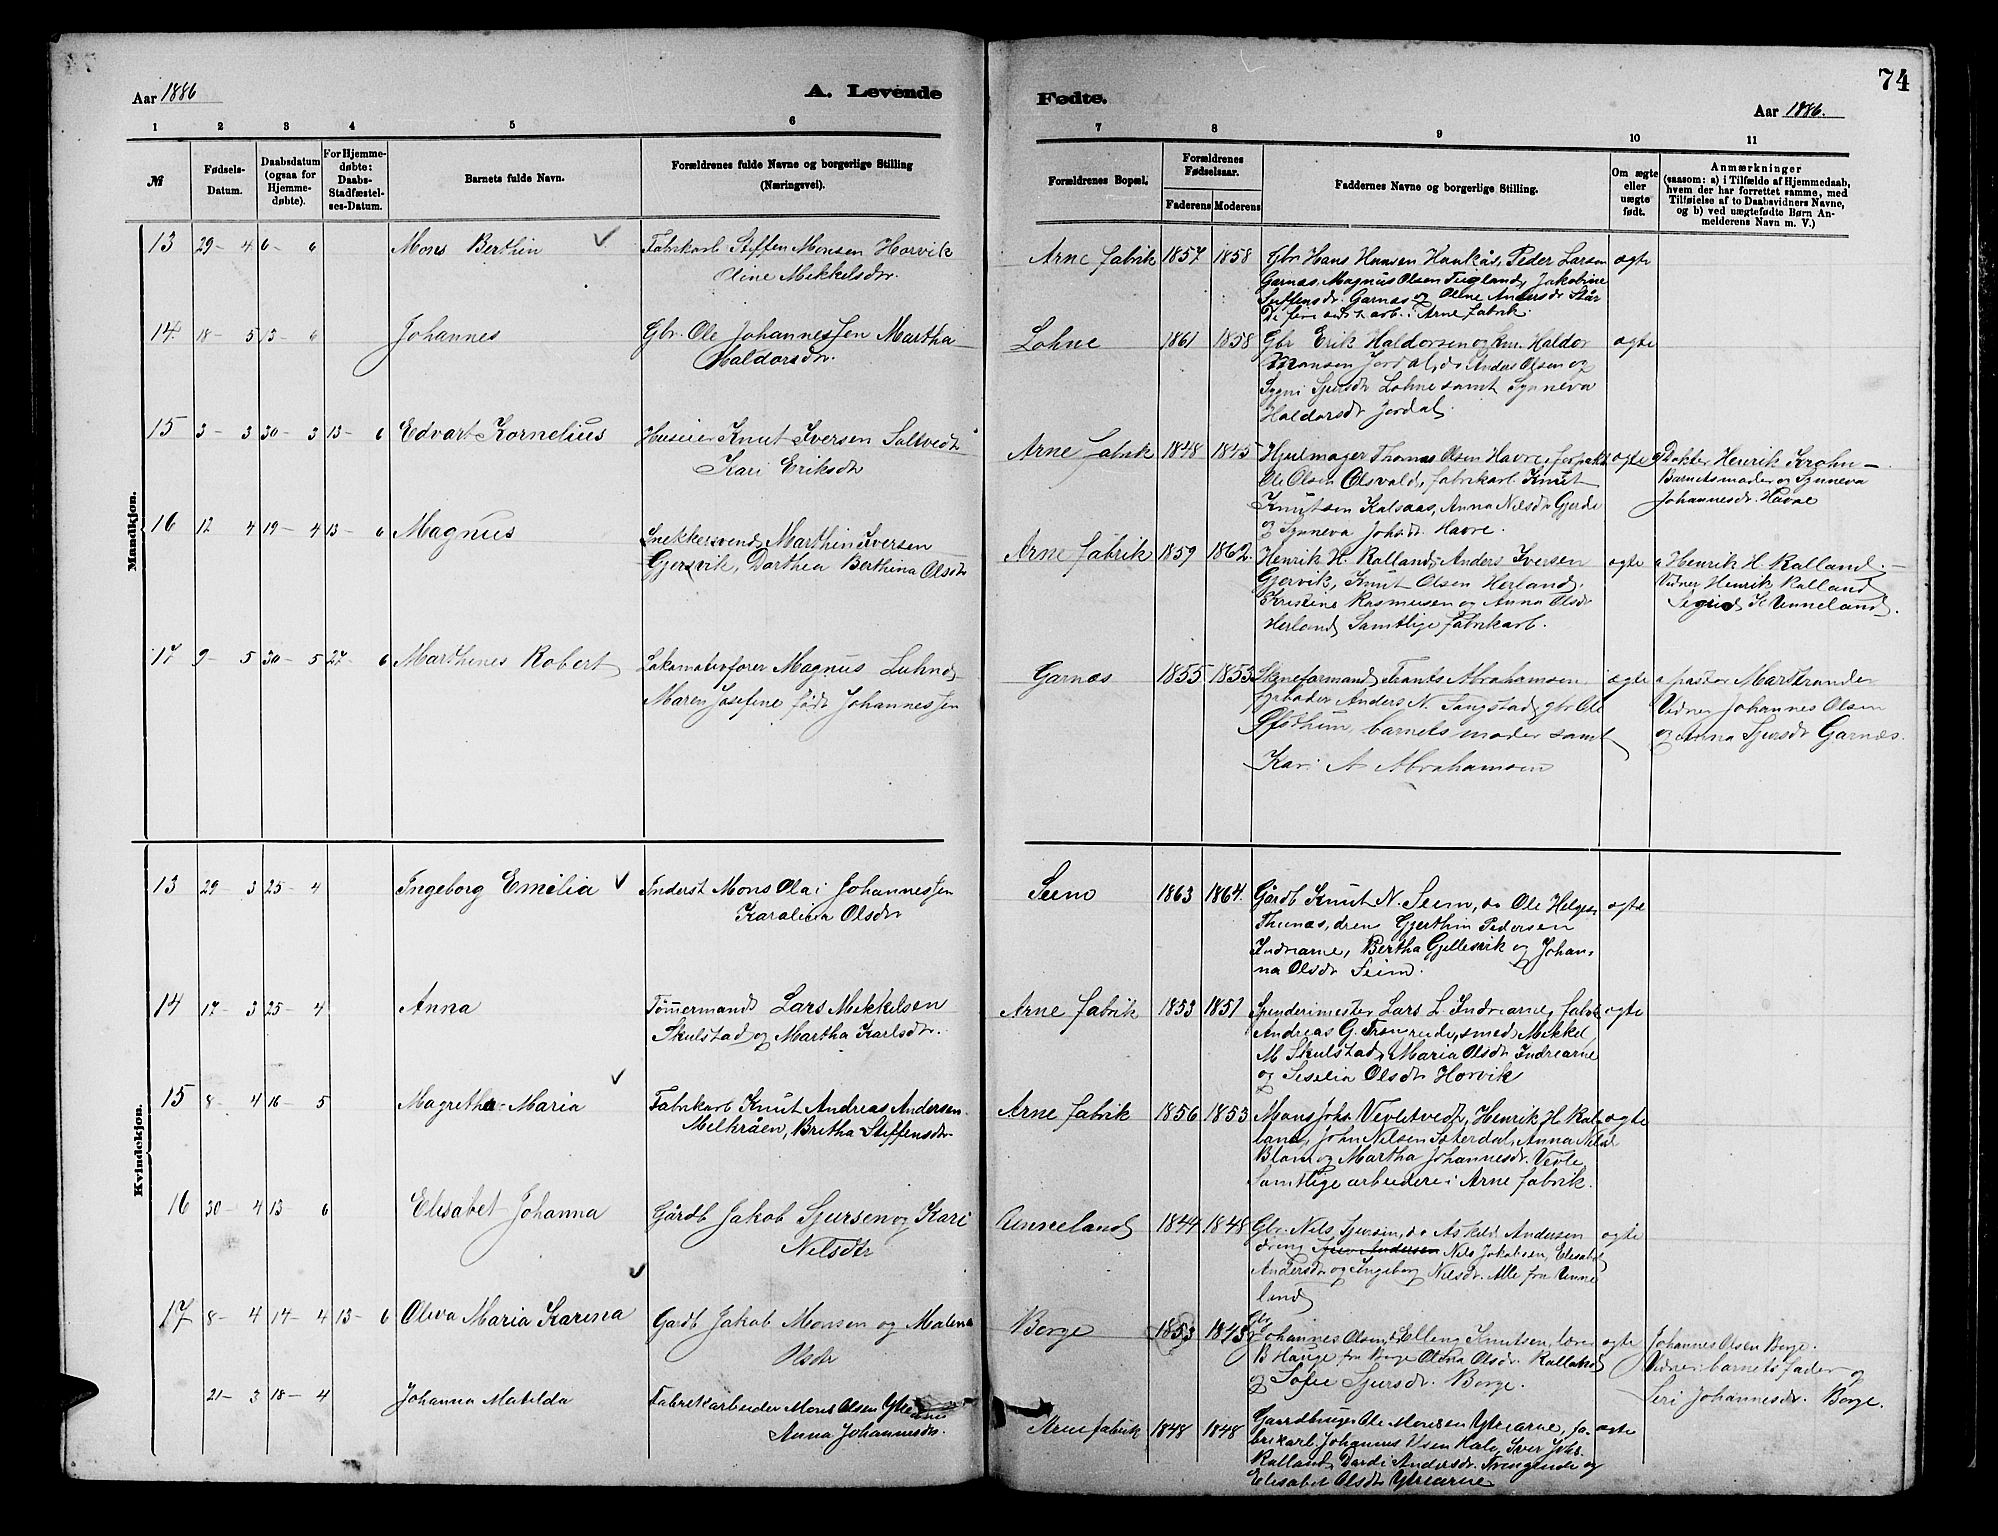 Aar 1886
A. Levende
1 2 3 4 5 6
№
Fødsels-
Datum.
Daabsdatum
(ogsaa for
Hjemme-
døbte).
For Hjemme-
døbte:
Daabs-
Stadfæstel-
ses-Datum.
Barnets fulde Navn.
Forældrenes fulde Navne og borgerlige Stilling
(Næringsvei).
Mandkjøn.
13 29 - 4 6 - 6 Mons Berthin Fabrikarb Steffen Monsen Horvik
Oline Mekkelsdr.
14. 18 - 5 13 - 6 Johannes Gbr. Ole Johannessen Martha
Haldorsdr.
15 3 - 3 30 - 3 13 - 6 Edvart Kornelius Huseier Knut Iversen Saltvedt
Kari Eriksdr
16 12 4 19 - 4 13 - 6 Magnus Snekkersvend Marthin Iversen
Gjersvik, Dorthea Berthina Olsdr
17 9 - 5 30 - 5 27 - 6 Marthines Robert Lokomotivfører Magnus Luhnd
Maren Josefine født Johannessen
Kvindekjøn.
13 29 - 3 25 - 4 Ingeborg Emelia Inderst Mons Olai Johannessen
Karolina Olsdr
14 17 - 3 25 - 4 Anna Tömmermand Lars Mekkelsen
Skulstad og Martha Karlsdr.
15 8 - 4 16 - 5 Magretha Maria Fabrikarb Knut Andreas Andersen
Melkråen, Britha Steffensdr
16 30 - 4 13 - 6 Elisabet Johanna Gårdb Jakob Sjursen og Kari
Nilsdtr
17 8 - 4 14 - 4 13 - 6 Oleva Maria Karina Gadb Jakob Monsen og Malena
Olsdr
21 - 3 18 - 4 Johanna Matilda Fabrekarbeider Mons Olsen
Anna Johannesdr.
74
Fødte.
Aar 1886.
7 8 9 10 11
Forældrenes Bopæl.
Forældrenes
Fødselsaar.
Faderens Moderens
Faddernes Navne og borgerlige Stilling.
Om ægte
eller
uægte
født.
Anmærkninger
(saasom: a) i Tilfælde af Hjemmedaab,
hvem der har forrettet samme, med
Tilføielse af to Daabsvidners Navne,
og b) ved uægtefødte Børn An-
melderens Navn m. V.)
Arne fabrik 1857 1858 Gbr Hans Hansen Haukås, Peder Larsen ægte
Garnæs, Magnus Olsen Teigland, Jakobine
Steffensdr. Garnæs og Oline Andersdr
De fire arb. i Arne Fabrik.
Lohne 1861 1858 Gbr Erik Haldorsen og Haldor ægte
Monsen Jordal, do Anders Olsen og
Sygni Sjursdr Lohne samt Synneva
Haldorsdr Jordal
Arne fabrik 1848 1845 Hjulmager Thomas Olsen Havre, ægte Dokter Henrik Krohn -
Ole Olsen Olsvold, fabrikarb Knut Barnets moder og Synneva
Knutsen Kalsaas, Anna Nilsdr Gjerde Johannesdr. Havre
og Synneva Johsdr Havre.
Arne fabrik 1859 1862. Henrik H. Kalland, Anders Iversen ægte a Henrik H. Kalland -
Gjervik, Knut Olsen Herland, Vidner Henrik Kalland
Kristine Rasmusen og Anna Olsdr Unneland.
Herland, Samtlige fabrikarb.
Garnæs 1855 1853 Abrahamsen ægte a pastor Marstrander
Anders N. Gbr Ole Vidner Johannes Olsen
barnets moder samt og Anna Sjursdr Garnæs.
Kari A Abrahamsen
Seim 1863 1864. Gårdb Knut N. Seim, do Ole Helges ægte
Thunæs, dreng Gjerthin Pedersen
Indrearne, Bertha Gjellesvik og Johan,
na Olsdr Seim.
Arne fabrik 1853 1851 Spenderimester Lars L Indrearne, fabr ægte
Andreas G. Trengereide, smed Mekkel
M Skulstad, Maria Olsdr Indrearne
og Seselia Olsdr Horvik
Arne fabrik 1856 1853 Mons Johs Vevletvedt, Henrik H Kal ægte
land, John Nilsen Isterdal, Anna Nilsdr
Blom og Martha Johannesdr. Vevle
Samtlige arbeidere i Arne fabrik.
Unneland 1844 1848 Gbr. Nils Sjursen, do Askild Andersen ægte
dreng Nils Jakobsen, Elisabet
Andersdr og Ingeborg Nilsdr. Alle fra Unne
land
Borge 1853 1843 Gbr Johannes Olsen, Elling Knutsen, lærer ægte Johannes Olsen Borge.
B Hauge fra Borge Olina Olsdr. Kalland Vidner: barnets fader og
og Sofie Sjursdr. Borge. Siri Johannesdr. Borge.
Arne fabrik 1848 1848 Gaardbruger Ole Monsen Ytrearne, fa- ægte
brikarb. Johannes Olsen Iver Johs.
Kalland, Dardi Andersdr. Trengereide og
Elisabet Olsdr Ytrearne